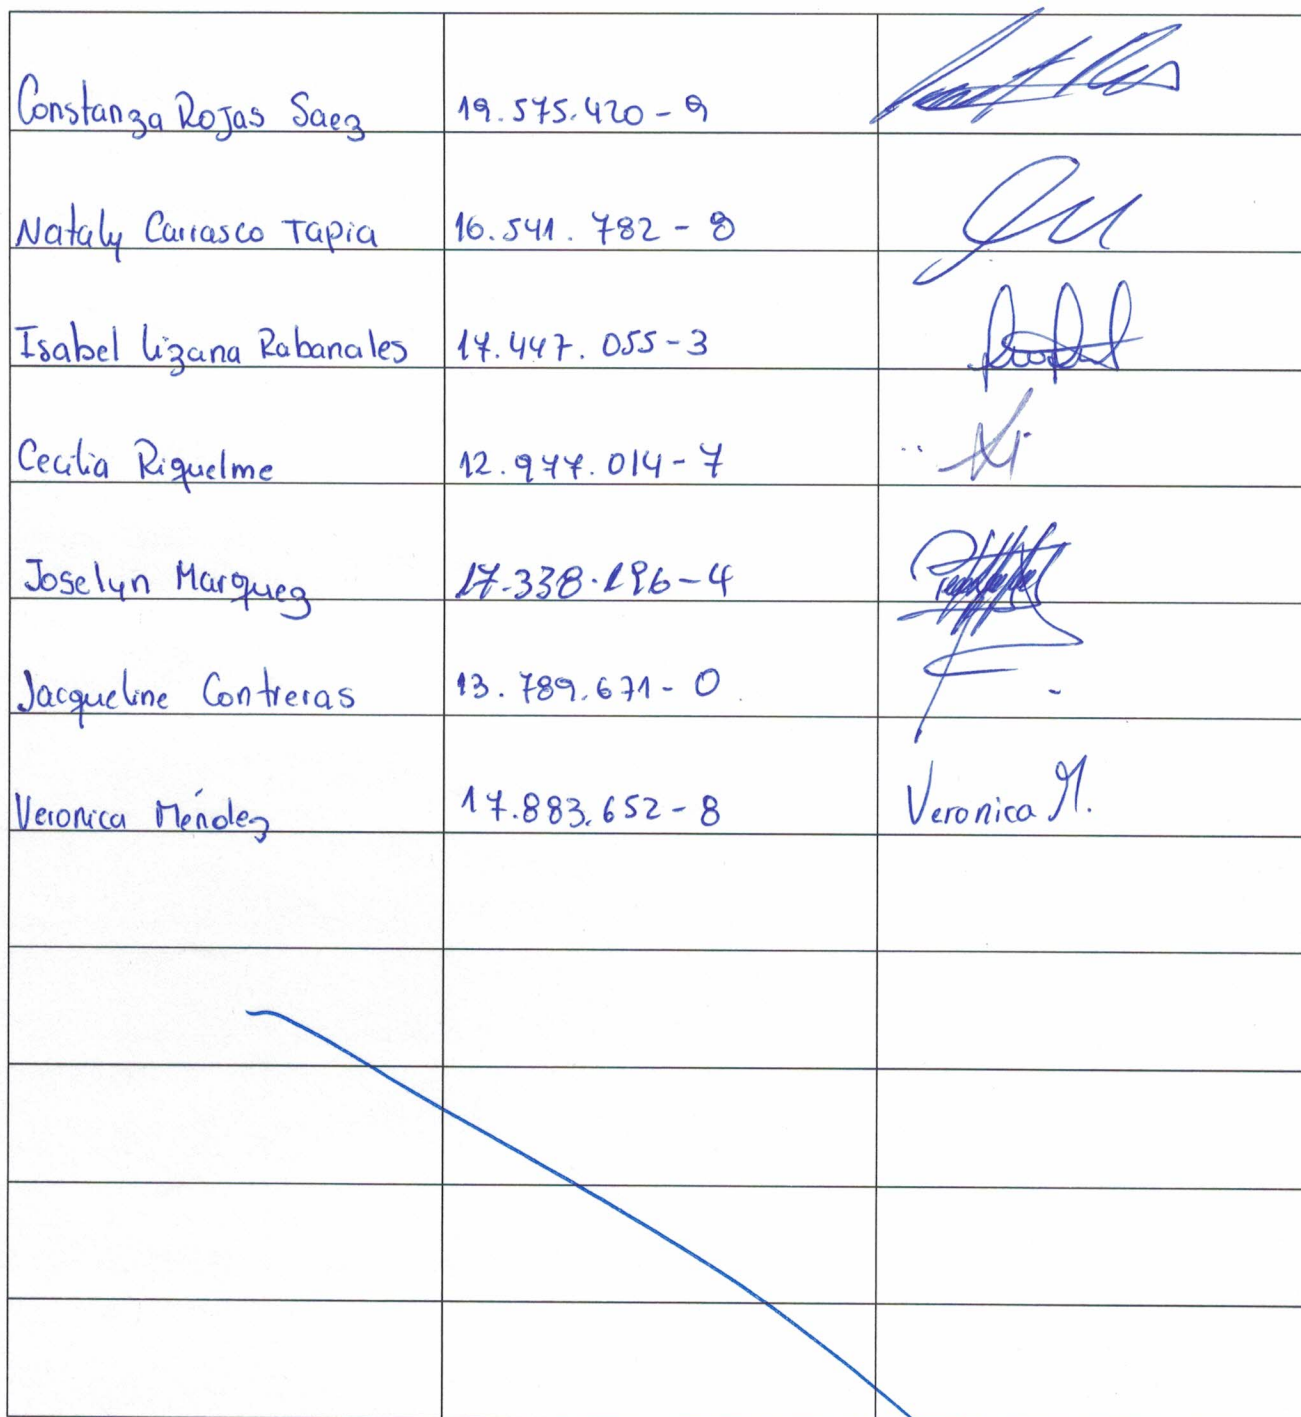 Constanza Rojas Saez 19.575.420-9
Nataly Carrasco Tapia 16.541.782-8
Isabel Lizana Rabanales 17.447.055-3
Cecilia Riquelme 12.977.014-7
Joselyn Marquez 17.338.196-4
Jacqueline Contreras 13.789.671-0
Veronica Méndez 17.883.652-8 Veronica M.